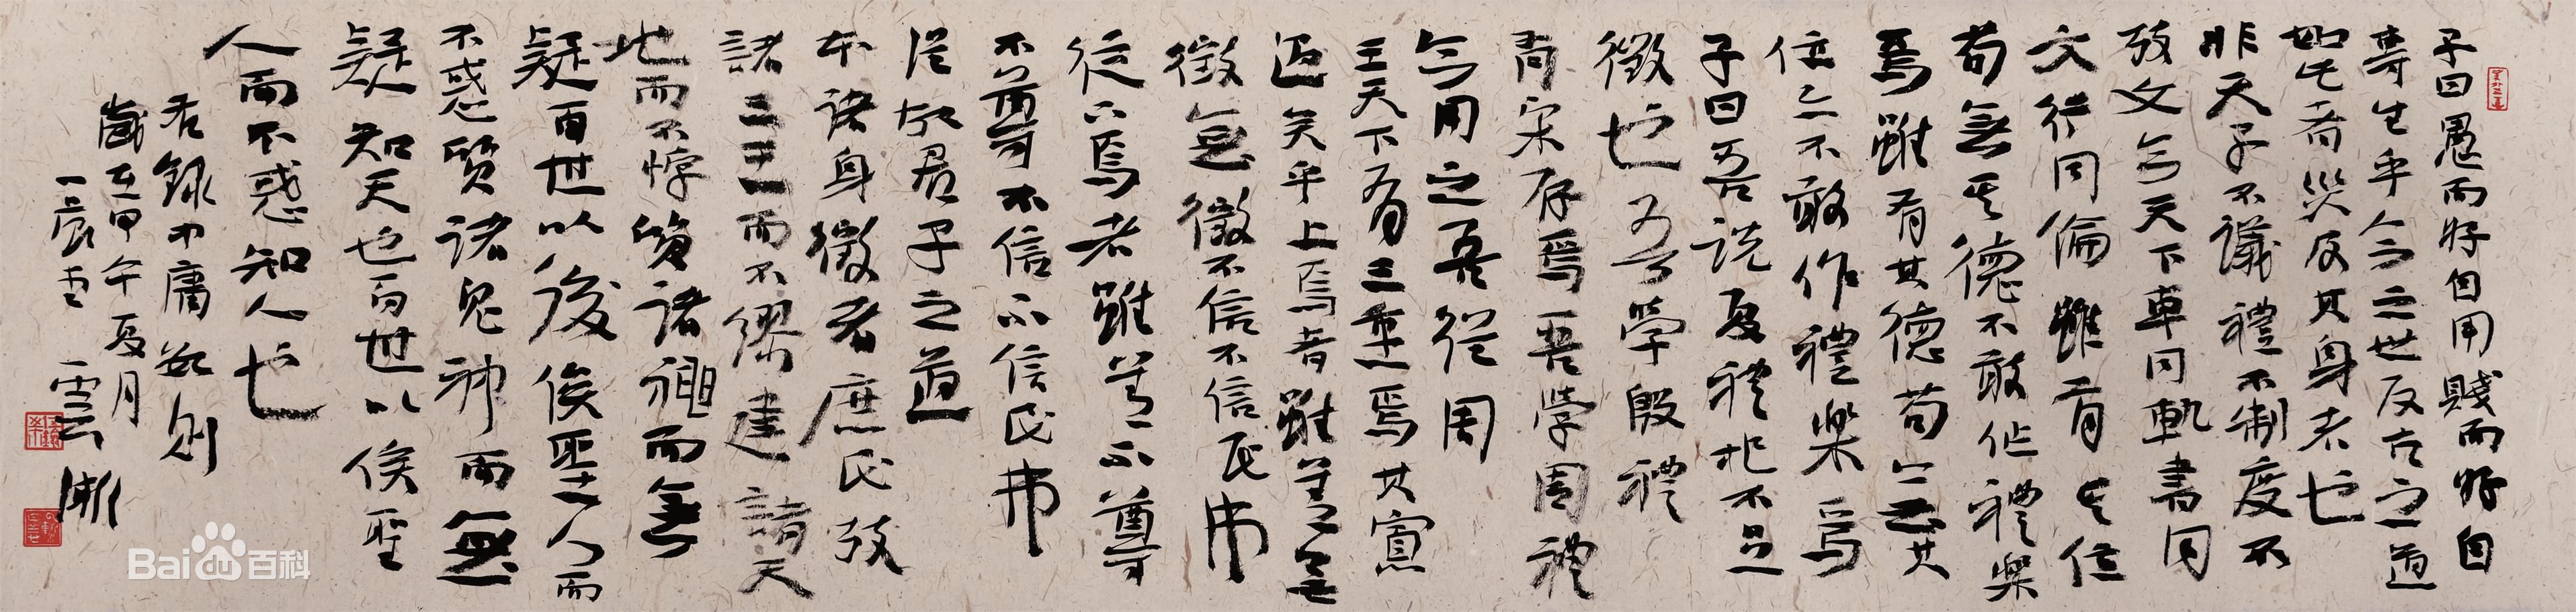 子曰愚而好自用賤而好自
專生乎今之世反古之道
如此者災及其身者也
非天子不議禮不制度不
攷文今天下車同軌書同
文行同倫雖有其位
苟無其德不敢作禮樂
焉雖有其德苟無其
位亦不敢作禮樂焉
子曰吾說夏禮杞不足
徵也吾學殷禮
有宋存焉吾學周禮
今用之吾從周
王天下有三重焉其寡
過矣乎上焉者雖善無
徵無徵不信不信民弗
從下焉者雖善不尊
不尊不信不信民弗
從故君子之道
本諸身徵者庶民攷
諸三王而不繆建諸天
地而不悖質諸而無
疑百世以後俟聖人而
不惑質諸鬼神而無
疑知天也百世以俟聖
人而不惑知人也
右錄中庸數則
歲在甲午夏月
一雲
Bai百科